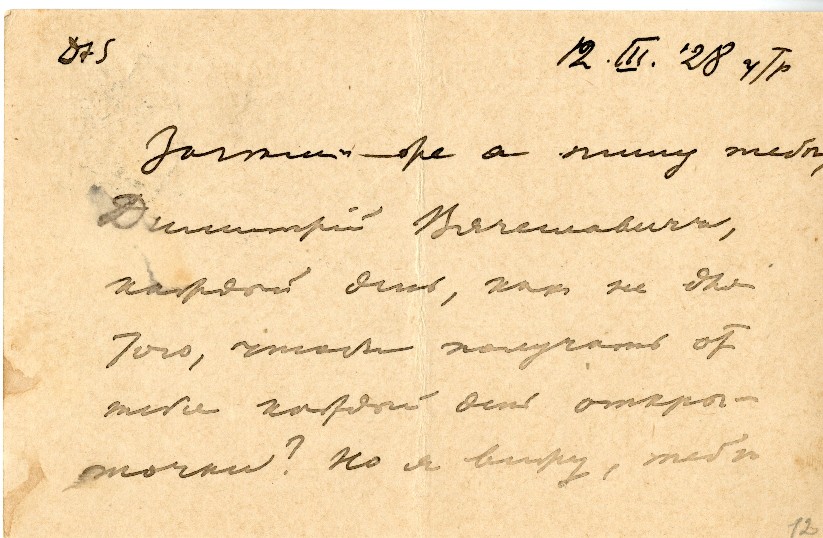 12. III. '28 утр
Зачем же я пишу тебе,
Димитрий Вячеславич,
каждый день, как не для
того, чтобы получать от
тебя каждый день откры-
точки? Но я вижу, тебе
12